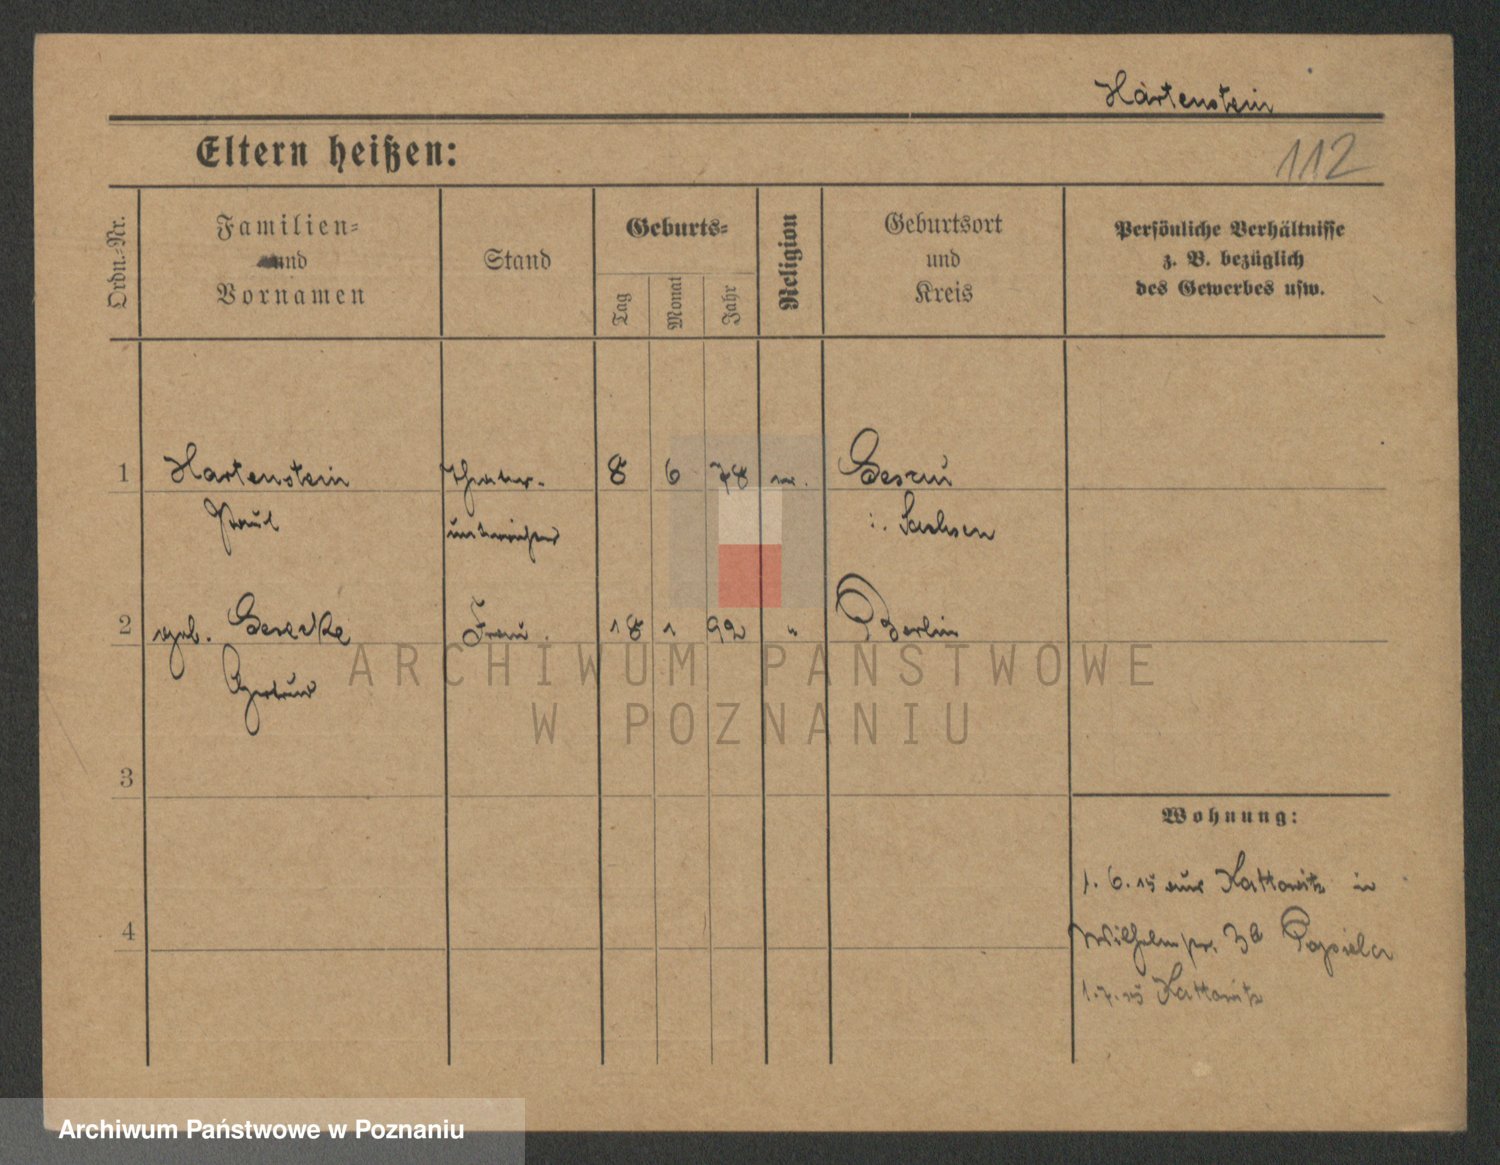 Hartenstein
Eltern heißen:
112
Ordn.-Nr.
Familien-
und
Vornamen
Stand
Geburts-
Tag
Monat
Jahr
Religion
Geburtsort
und
Kreis
Persönliche Verhältnisse
z. B. bezüglich
des Gewerbes usw.
1 Hartenstein 8 6 78
Paul i. Sachsen
2 geb. Frau 18 1 92 " Berlin
Gertrud
ARCHIWUM PAŃSTWOWE
W POZNANIU
3
Wohnung:
1. 6. 15 aus Kattowitz in
4
Wilhelmstr. Papiela
1. 7. 15 Kattowitz
Archiwum Państwowe w Poznaniu